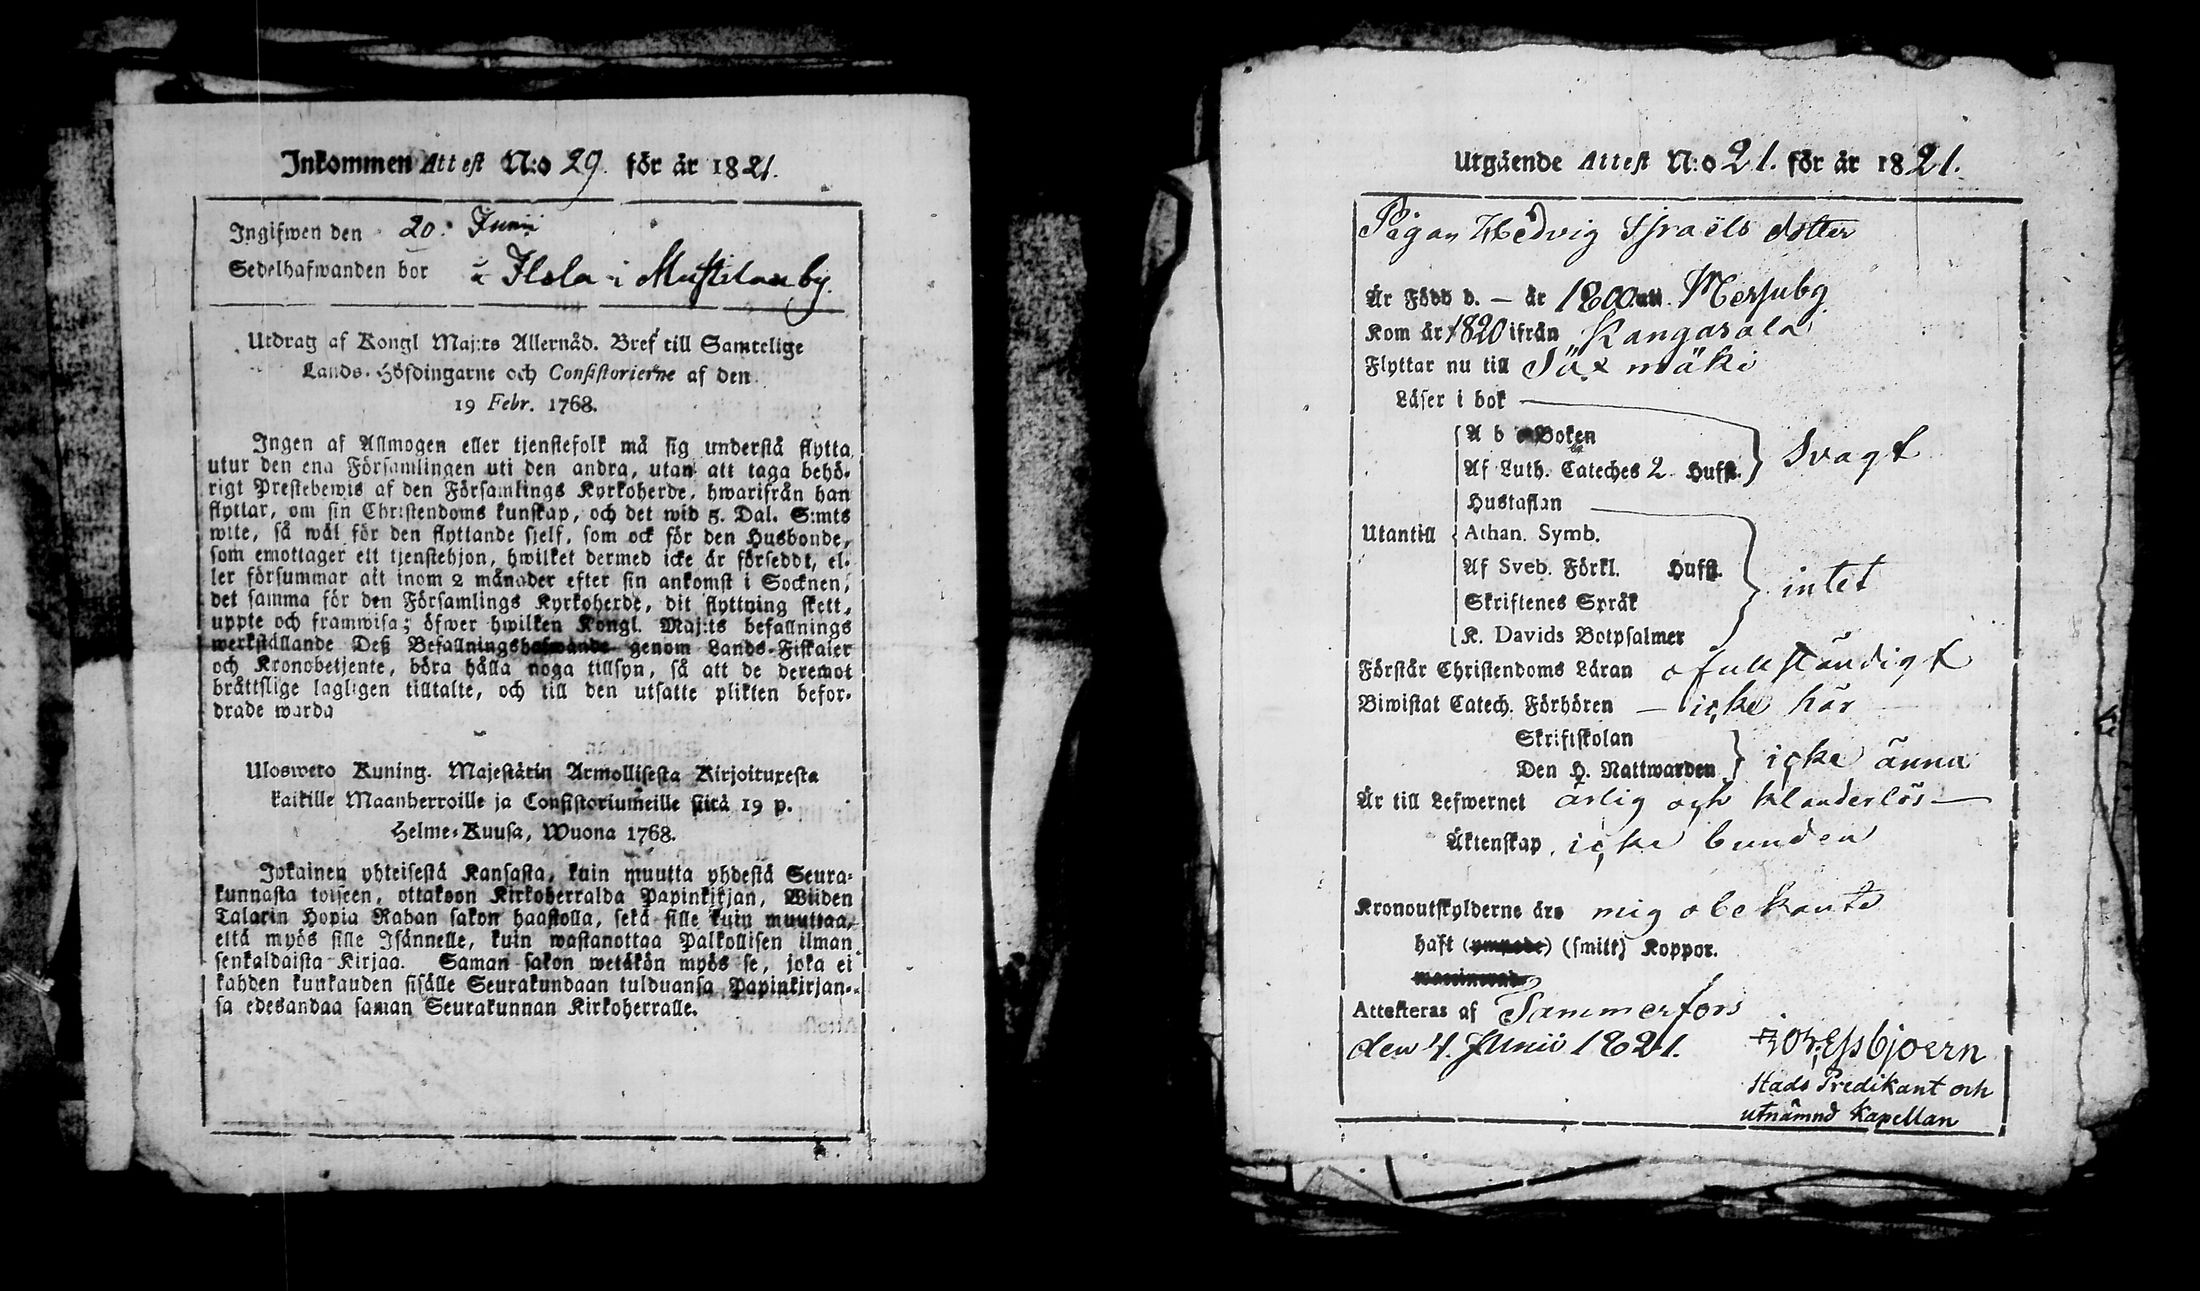 Inkommen Attest N:o 29. för år 1821.
Ingifwen den 20. Junii
Sedelhafwanden bor å Ilola i Mustilan by.
Utdrag af Kongl Maj:ts Allernåd. Bref till Samtelige
Lands-Höfdingarne och Consistorierne af den
19 Febr. 1768.
Ingen af Allmogen eller tjenstefolk må sig understå flytta
utur den ena Församlingen uti den andra, utan att taga behö-
rigt Prestebewis af den Församlings Kyrkoherde, hwarifrån han
flyttar, om sin Christendoms kunskap, och det wid 5. Dal. S:mts
wite, så wäl för den flyttande sjelf, som ock för den Husbonde,
som emottager ett tjenstehjon, hwilket dermed icke är förseddt, el-
ler försummar att inom 2 månader efter sin ankomst i Socknen,
det samma för den Församlings Kyrkoherde, dit flyttning skett,
uppte och framwisa; öfwer hwilken Kongl. Maj:ts befallnings
werkställande Deß Befallningshafwande genom Lands-Fiskaler
och Kronobetjente, böra hålla noga tillsyn, så att de deremot
bråttslige lagligen tilltalte, och till den utsatte plikten befor-
drade warda
Ulosweto Kuning. Majestätin Armollisesta Kirjoituxesta
kaikille Maanherroille ja Consistoriumeille siitä 19 p.
Helme-Kuusa, Wuona 1768.
Jokainen yhteisestä Kansasta, kuin muutta yhdestä Seura-
kunnasta toiseen, ottakoon Kirkoherralda Papinkirjan, Wiiden
Talarin Hopia Rahan sakon haastolla, sekä sille kuin muuttaa,
että myös sille Isännelle, kuin wastanottaa Palkollisen ilman
senkaldaista Kirjaa. Saman sakon wetäkön myös se, joka ei
kahden kunkauden sisälle Seurakundaan tulduansa Papinkirjan-
sa edesandaa saman Seurakunnan Kirkoherralle.
Utgäende Attest N:o 21. för år 1821.
Pigan Hedvig Israëls dotter
Är Född d. — år 1800 uti Messuby
Kom år 1820 ifrån Kangasala
Flyttar nu till Sääxmäki
Läser i bok
A b c Boken
Af Luth. Cateches 2 Hufst. svagt
Hustaflan
Utantill Athan. Symb.
Af Sveb. Förkl. Hufst. intet
Skriftenes Språk
K. Davids Botpsalmer
Förstår Christendoms Läran ofullständigt
Biwistat Catech. Förhören — icke här
Skriftskolan
Den H. Nattwarden icke ännu
Är till Lefwernet ärlig och klanderlös —
Äktenskap icke bunden
Kronoutskylderne äre mig obekante
haft (ympade) (smitt) Koppor.
Attesteras af Tammerfors
den 4. Junii 1821.
Stads Predikant och
utnämnd Kapellan